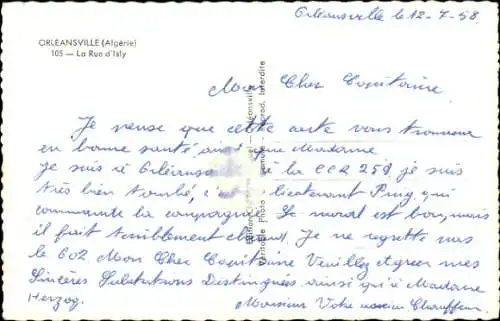 Orléansville le 12-7-58.
ORLÉANSVILLE (Algérie)
105 — La Rue d'Isly
Mon Cher Capitaine
Je pense que cette carte vous trouvera
en bonne santé ainsi que Madame
je suis à Orléans à la CCR 259 je suis
très bien tombé, lieutenant qui
commande la compagnie Le moral est bon, mais
il fait terriblement Je ne regrette pas
le 602 Mon Cher Capitaine Veuillez agréer mes
Sincères Salutations Distinguées ainsi qu'à Madame
Herzog. Monsieur Votre ancien Chauffeur.
Véritable Photo Interdite